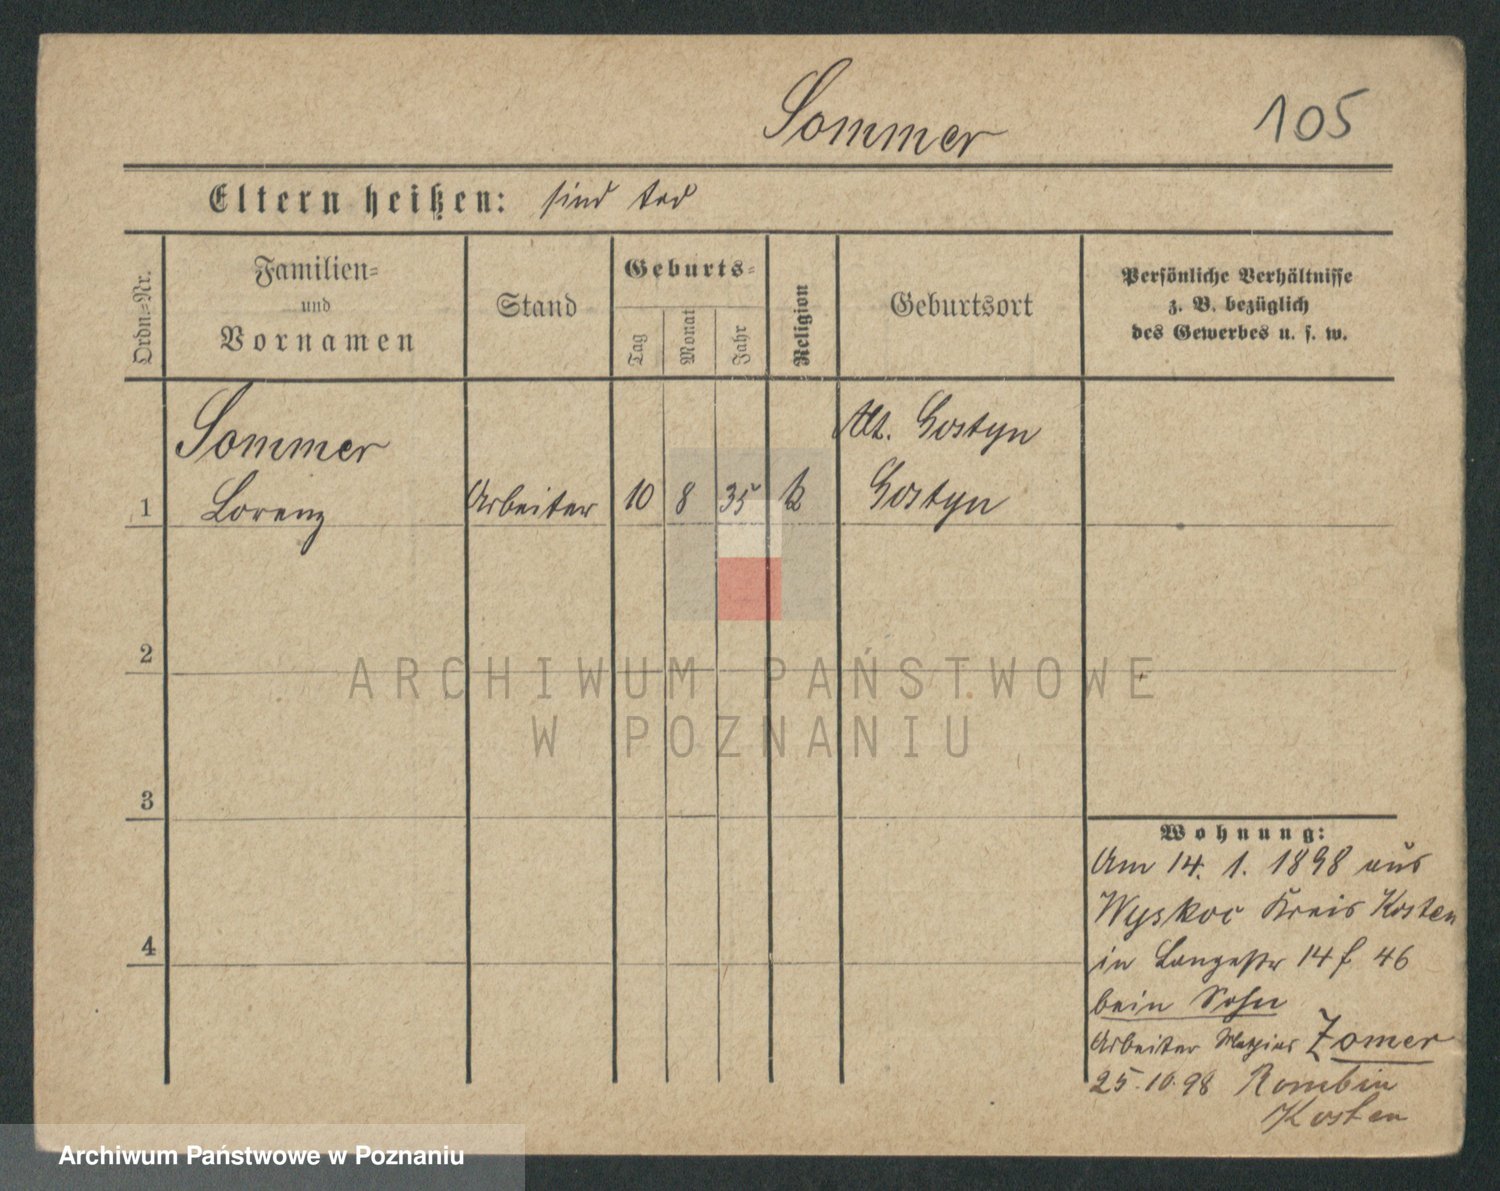 Sommer
105
Eltern heißen: sind tod
Ordn=Nr.
Familien=
und
Vornamen
Stand
Geburts=
Tag
Monat
Jahr
Religion
Geburtsort
Persönliche Verhältnisse
z. B. bezüglich
des Gewerbes u. s. w.
Sommer
Alt. Gostyn
1 Lorenz Arbeiter 10 8 35 k Gostyn
2
3
4
Wohnung:
Am 14. 1. 1898 aus
Wyskoc Kreis Kosten
in Langestr 14 f 46
beim Sohn
Arbeiter Zomer
25.10.98 Rombin
Kosten
ARCHIWUM PAŃSTWOWE
W POZNANIU
Archiwum Państwowe w Poznaniu